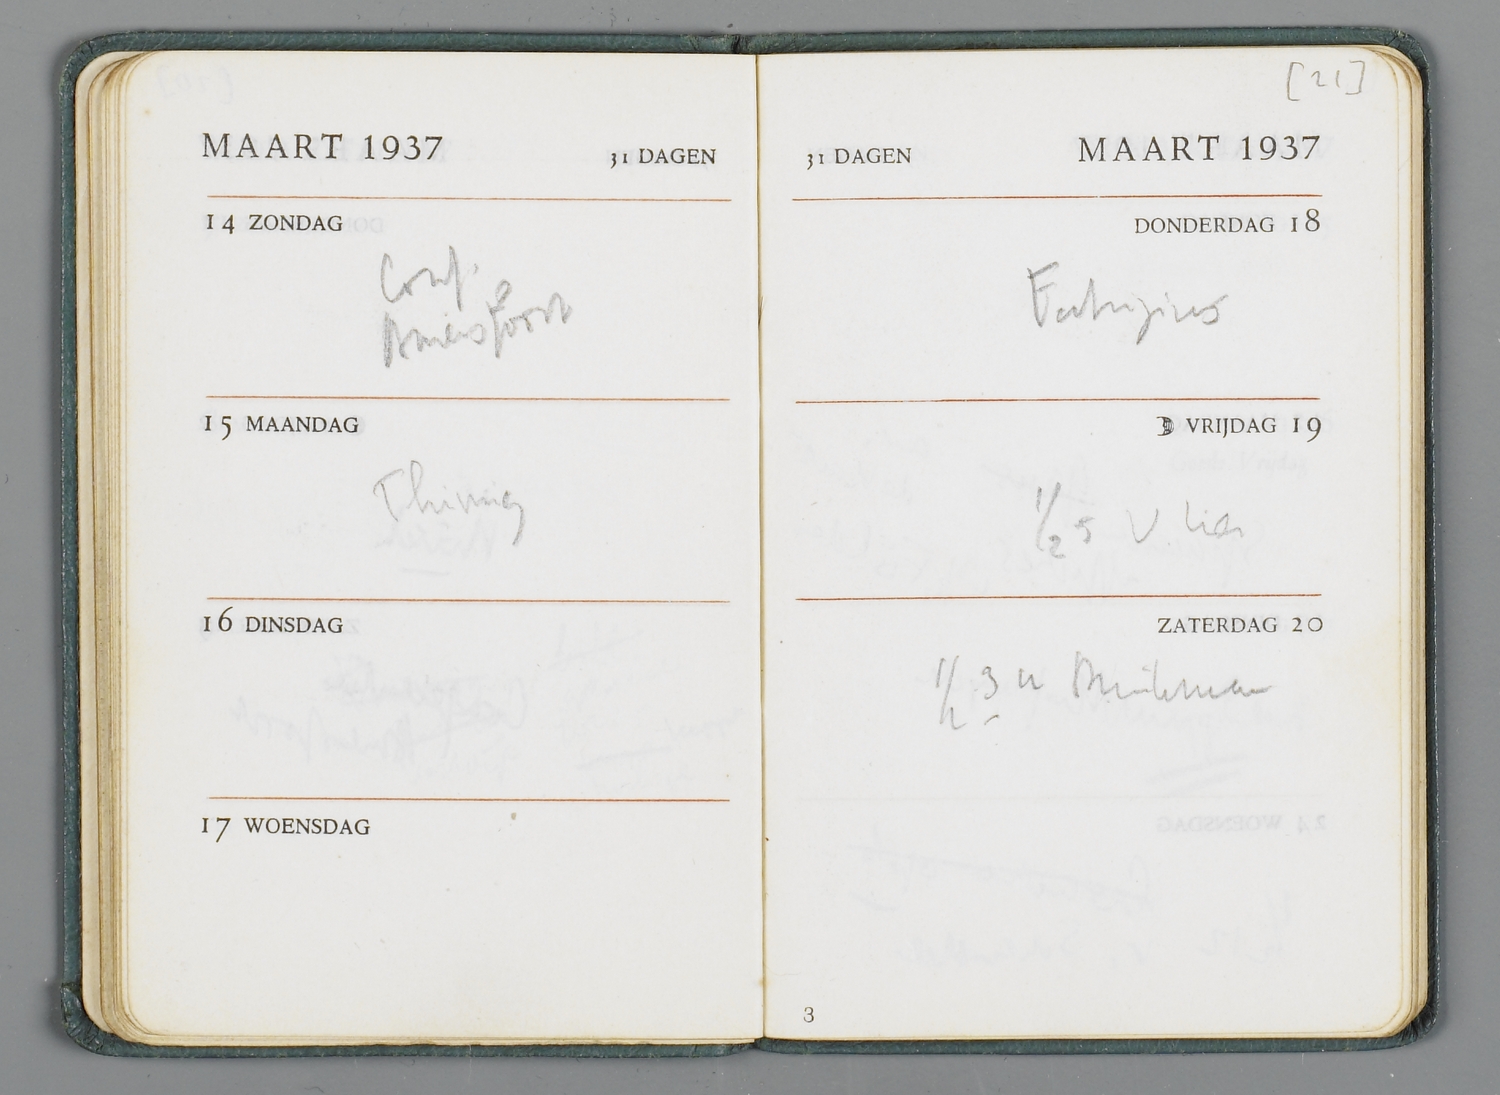 MAART 1937
31 DAGEN
14 ZONDAG
Conf.
Amersfoort
15 MAANDAG
16 DINSDAG
17 WOENSDAG
[21]
31 DAGEN
MAART 1937
DONDERDAG 18
VRIJDAG 19
1/2 5 V.
ZATERDAG 20
1/2 3 u
3